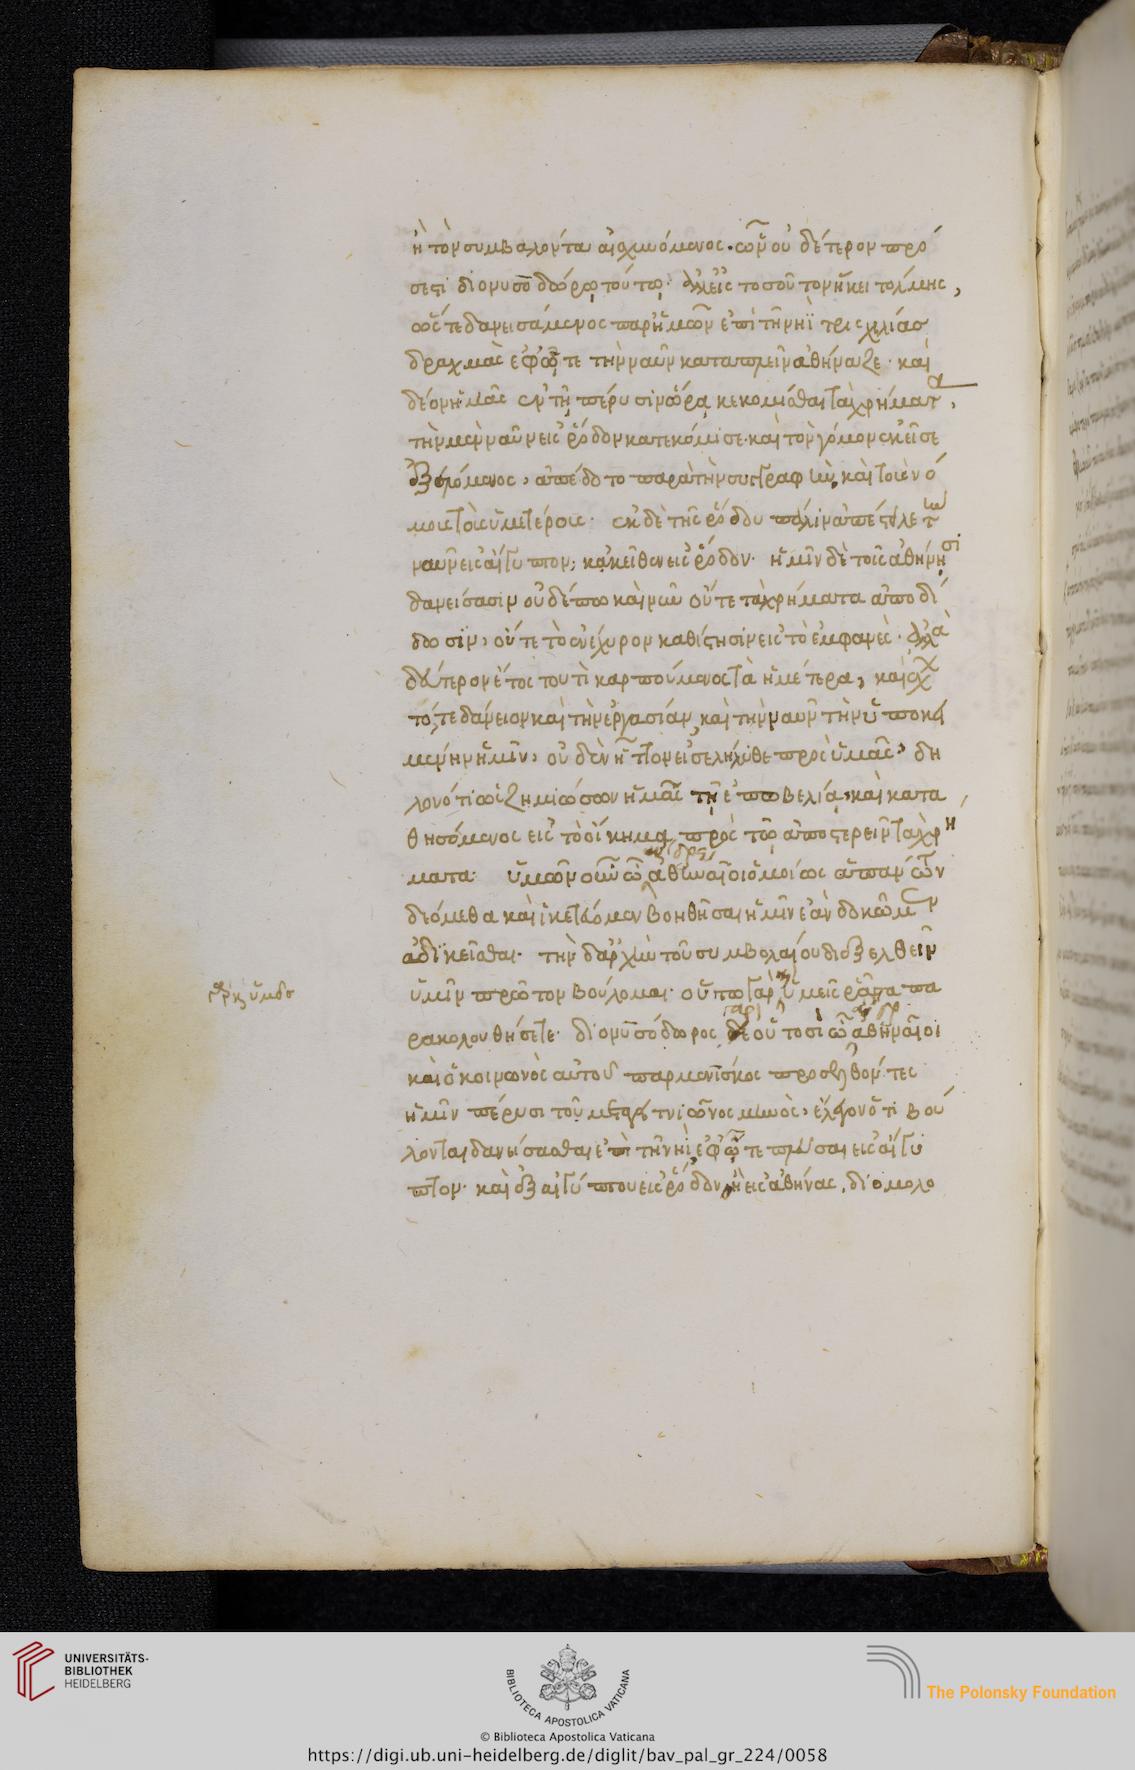 ἢ τὸν συμβαλόντα αἰσχυνόμενος. ὧν οὐδέτερον πρό
σεστι διονυσοδώρῳ τούτῳ. ἀλλ' εἰς τοσοῦτον ἥκει τόλμης,
ὥστε δανεισάμενος παρ' ἡμῶν ἐπὶ τῇ νηῒ τρισχιλίας
δραχμὰς ἐφ' ᾧτε τὴν ναῦν καταπλεῖν ἀθήναζε. καὶ
δέον ἡμᾶς ἐν τῇ πέρυσιν ὥρᾳ κεκομίσθαι τὰ χρήματα,
τὴν μὲν ναῦν εἰς ῥόδον κατεκόμισε. καὶ τὸν γόμον ἐκεῖσε
ἐξελόμενος, ἀπέδοτο παρὰ τὴν συγγραφὴν καὶ τοὺς νό
μους τοὺς ὑμετέρους. ἐκ δὲ τῆς ῥόδου πάλιν ἀπέστειλε τὴν
ναῦν εἰς αἴγυπτον, κἀκεῖθεν εἰς ῥόδον. ἡμῖν δὲ τοῖς ἀθήνησι
δανείσασιν οὐδέπω καὶ νῦν οὔτε τὰ χρήματα ἀποδί
δωσιν, οὔτε τὸ ἐνέχυρον καθίστησιν εἰς τὸ ἐμφανές. ἀλλὰ
δεύτερον ἔτος τουτὶ καρπούμενος τὰ ἡμέτερα, καὶ ἔχων
τό, τε δάνειον καὶ τὴν ἐργασίαν, καὶ τὴν ναῦν τὴν ὑποκει
μένην ἡμῖν, οὐδὲν ἧττον εἰσελήλυθε πρὸς ὑμᾶς. δη
λονότι ὡς ζημιώσων ἡμᾶς τῇ ἐπωβελίᾳ, καὶ κατα
θησόμενος εἰς τὸ οἴκημα πρὸς τῷ ἀποστερεῖν τὰ χρή
ματα. ὑμῶν οὖν ὦ ἄνδρες ἀθηναῖοι ὁμοίως ἁπάντων
δεόμεθα καὶ ἱκετεύομεν βοηθῆσαι ἡμῖν ἐὰν δοκῶμεν
ἀδικεῖσθαι. τὴν δ' ἀρχὴν τοῦ συμβολαίου διεξελθεῖν
ὑμῖν πρῶτον βούλομαι. οὕτω γὰρ καὶ ὑμεῖς ῥᾷστα πα
ρακολουθήσετε. διονυσόδωρος γὰρ οὑτοσὶ ὦ ἄνδρες ἀθηναῖοι
καὶ ὁ κοινωνὸς αὐτοῦ παρμενίσκος προσελθόντες
ἡμῖν πέρυσι τοῦ μεταγειτνιῶνος μηνὸς, ἔλεγον ὅτι βού
λονται δανείσασθαι ἐπὶ τῇ νηῒ, ἐφ' ᾧτε πλεῦσαι εἰς αἴγυ
πτον. καὶ ἐξ αἰγύπτου εἰς ῥόδον, ἢ εἰς ἀθήνας. διομολο
UNIVERSITÄTS-
BIBLIOTHEK
HEIDELBERG
BIBLIOTECA APOSTOLICA VATICANA
The Polonsky Foundation
© Biblioteca Apostolica Vaticana
https://digi.ub.uni-heidelberg.de/diglit/bav_pal_gr_224/0058